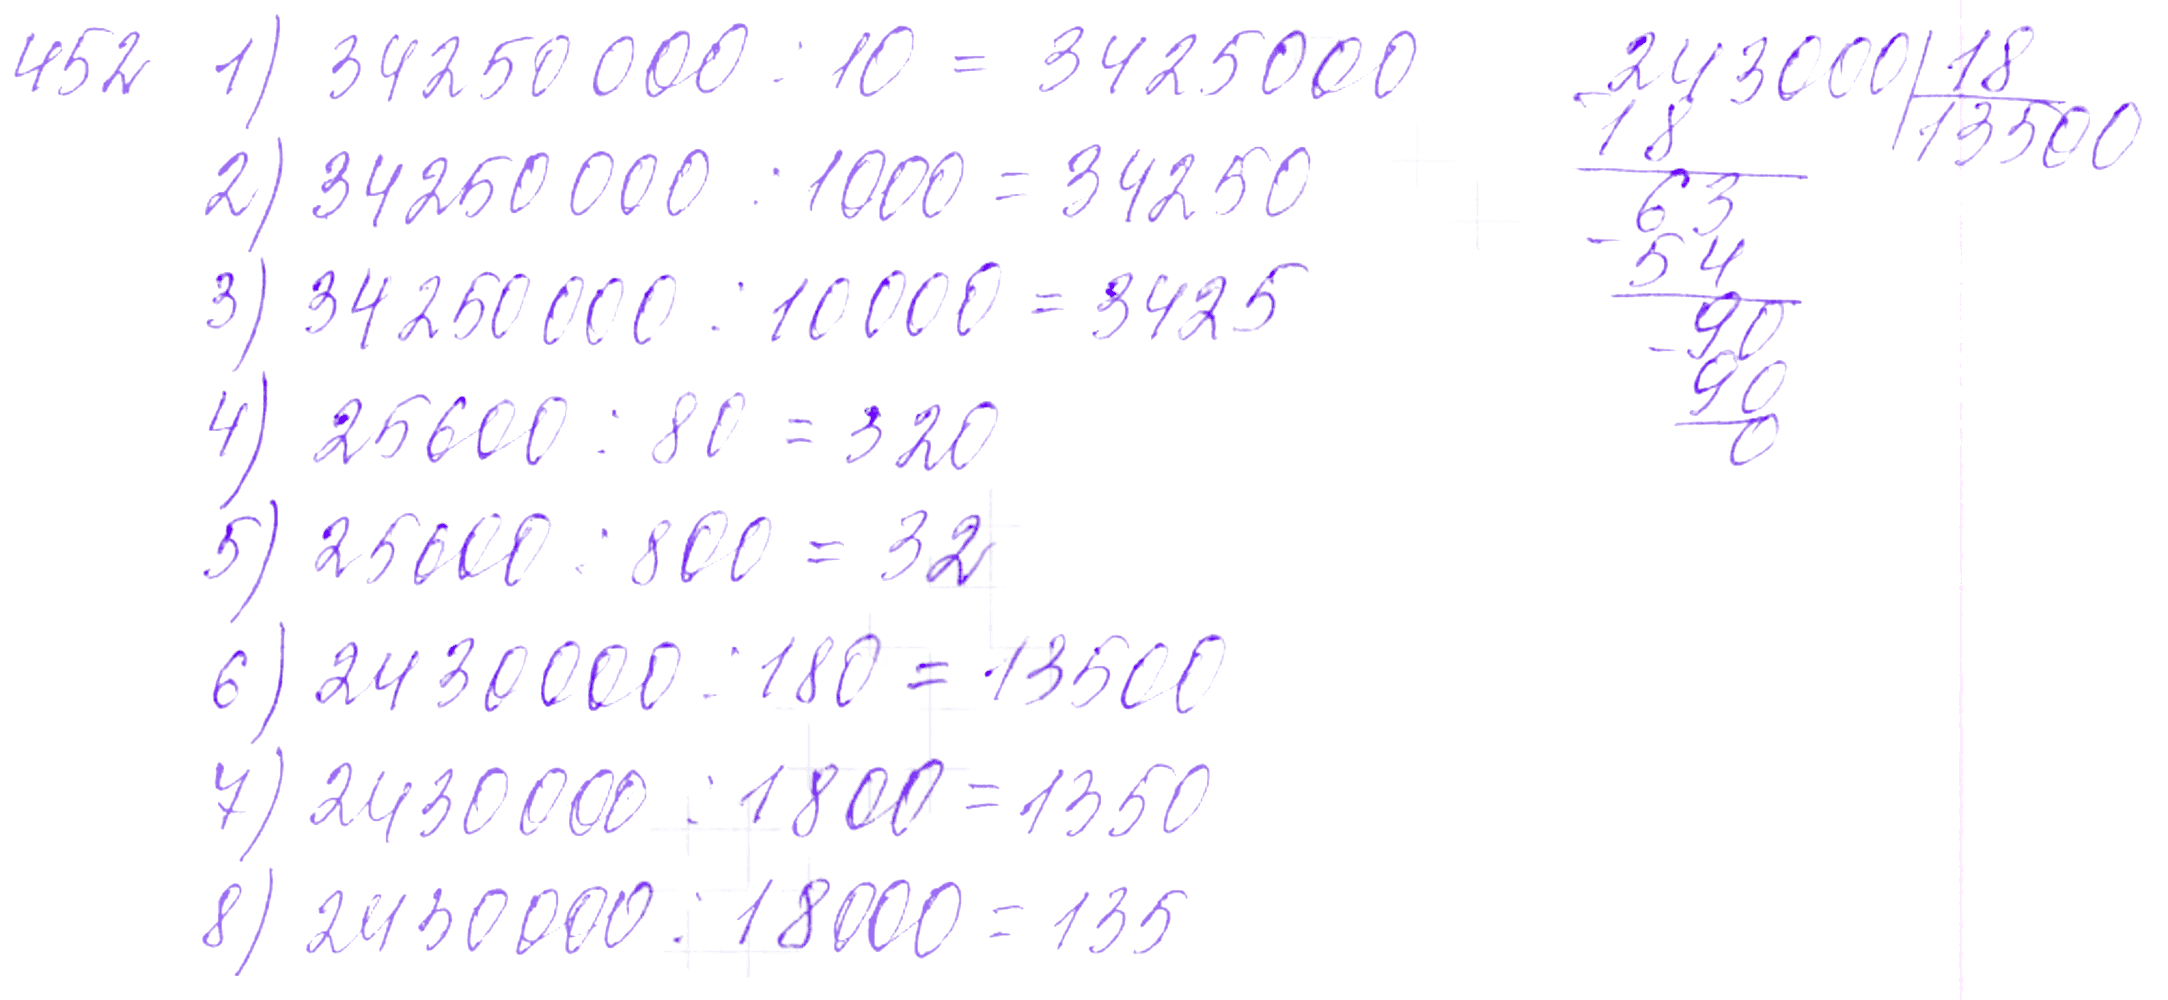 452 1) 34250 000 : 10 = 3425000
2) 34250 000 : 1000 = 34250
3) 34250000 : 10000 = 3425
4) 25600 : 80 = 320
5) 25600 : 800 = 32
6) 2430000 : 180 = 13500
7) 2430000 : 1800 = 1350
8) 2430000 : 18000 = 135
243000 | 18
- 18 | 13500
63
- 54
90
- 90
0